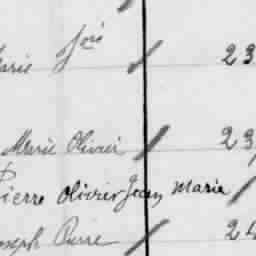 José
Marie / 23
Marie Olivier / 23
Pierre Olivier Jean Marie /
Joseph Pierre / 24